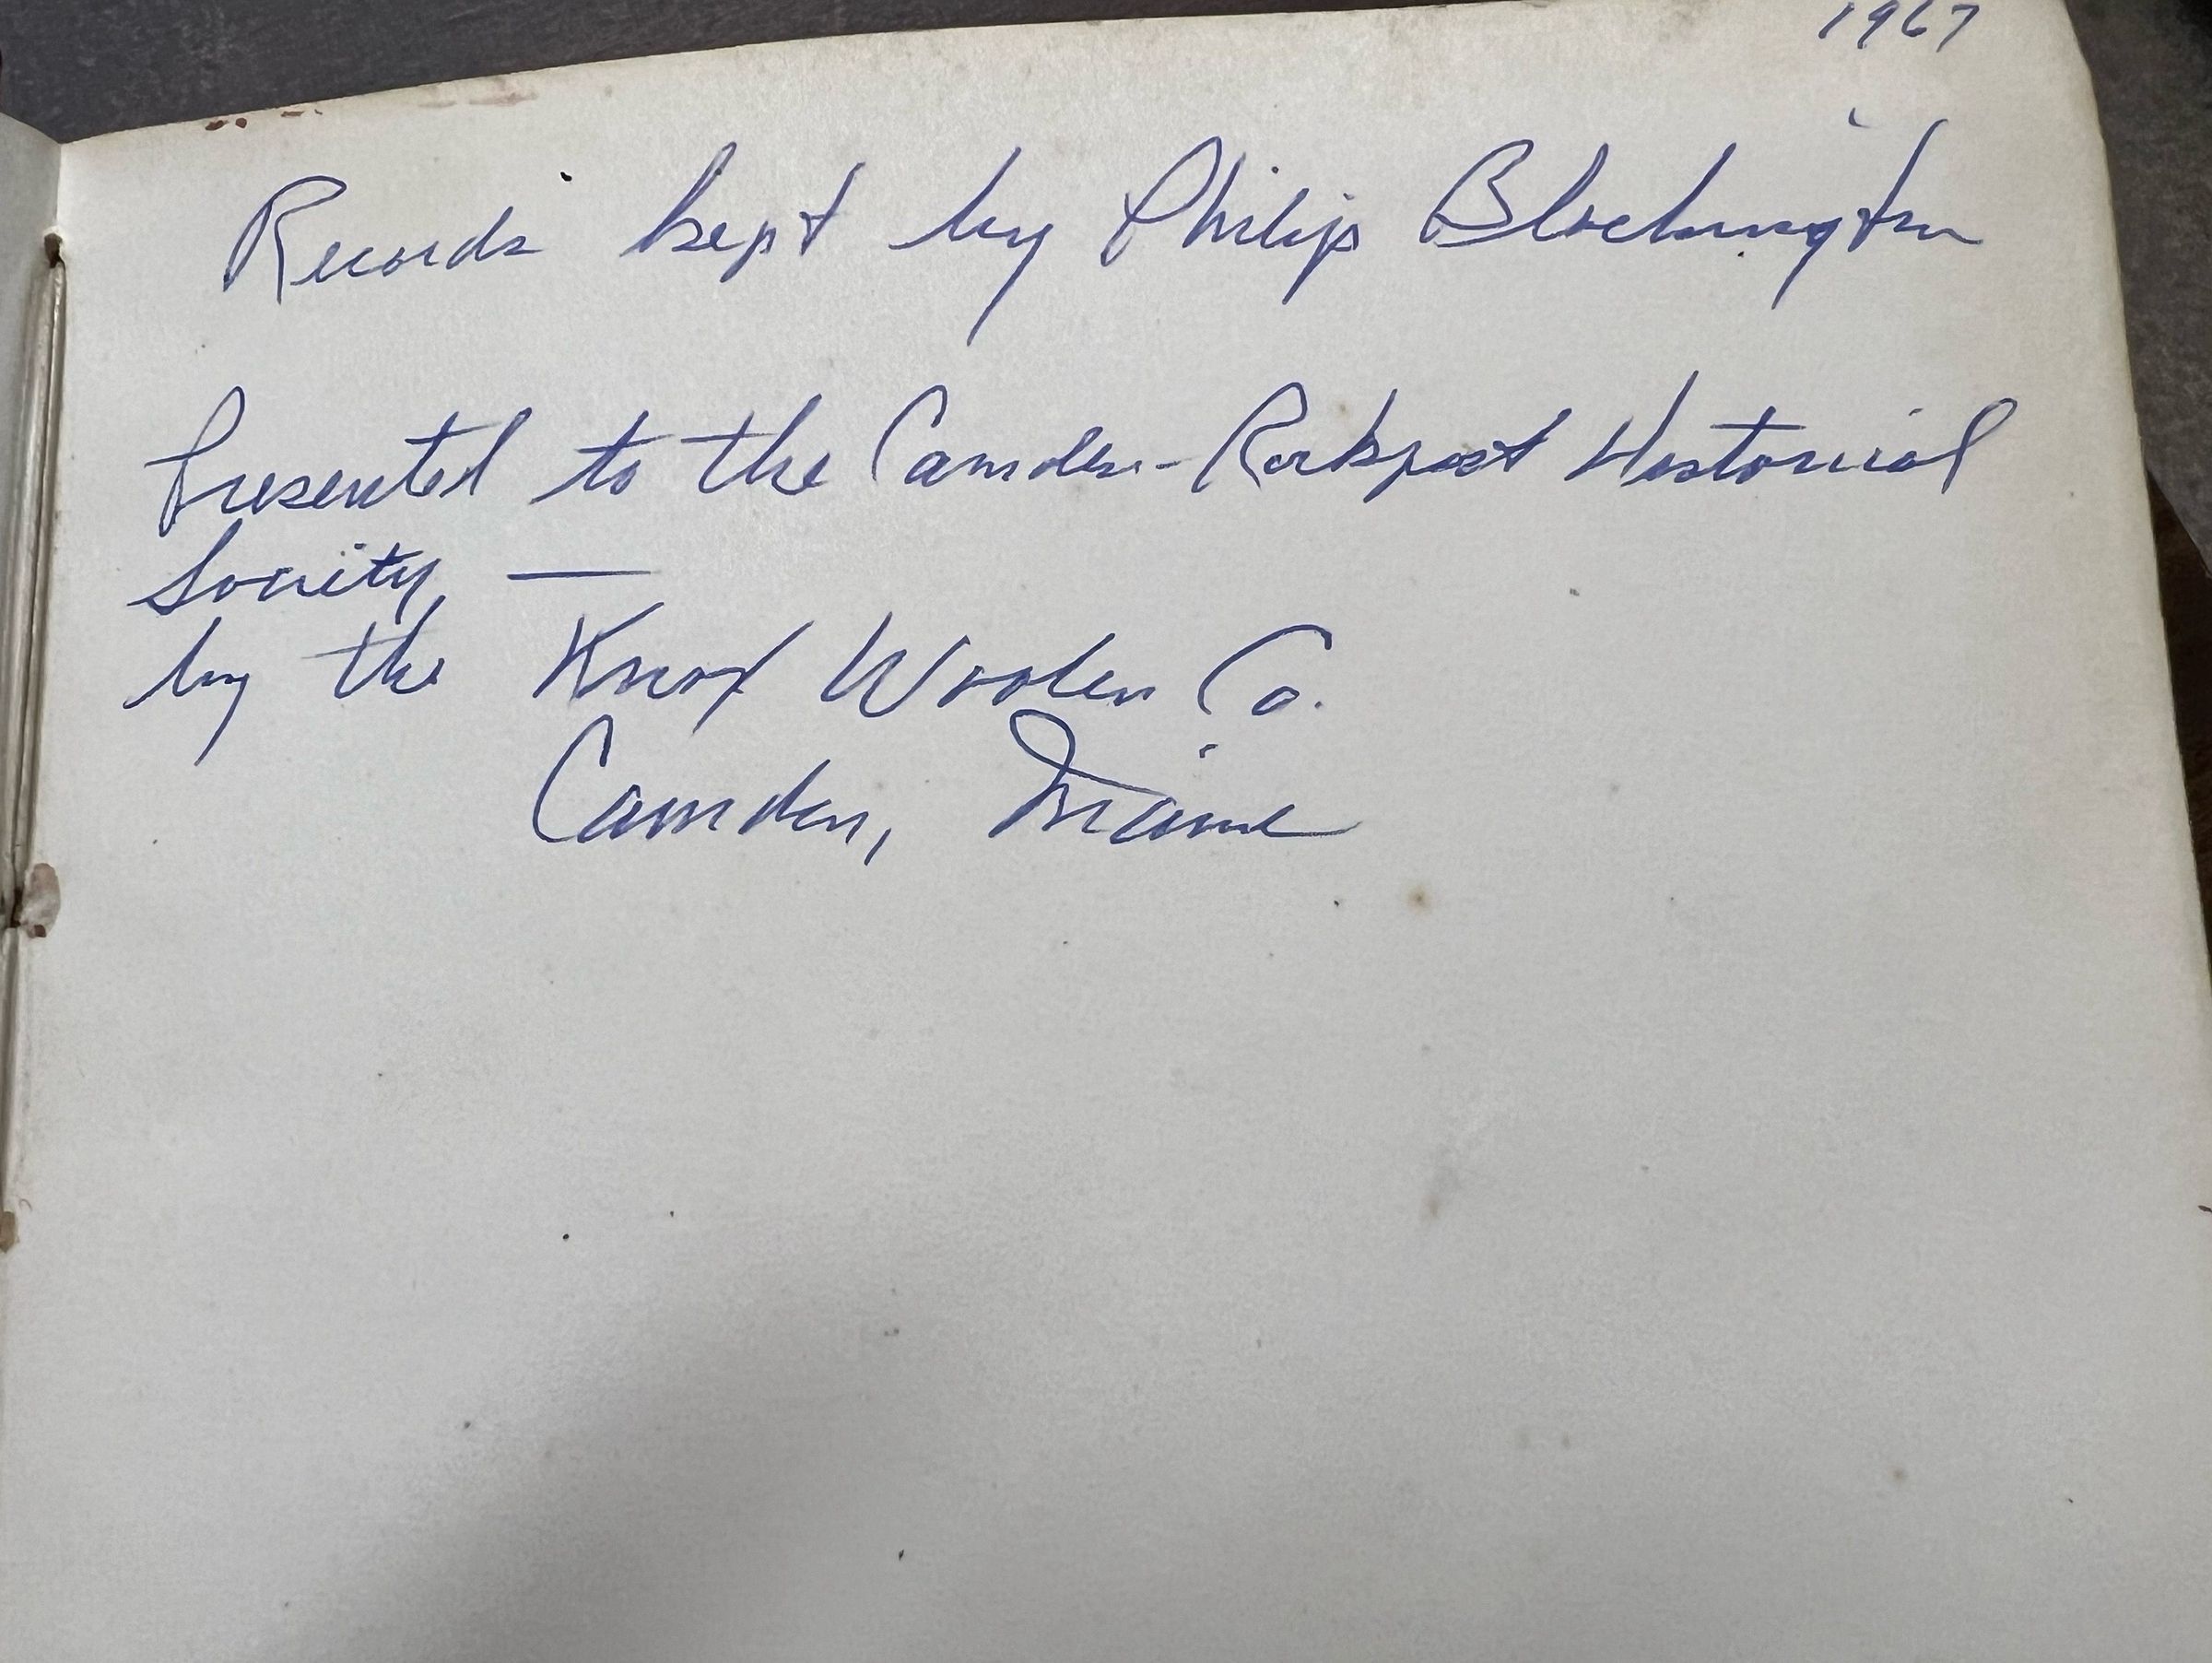 1967
Records kept by Philip Blockington
Presented to the Camden-Rockport Historical
Society —
by the Knox Woolen Co.
Camden, Maine